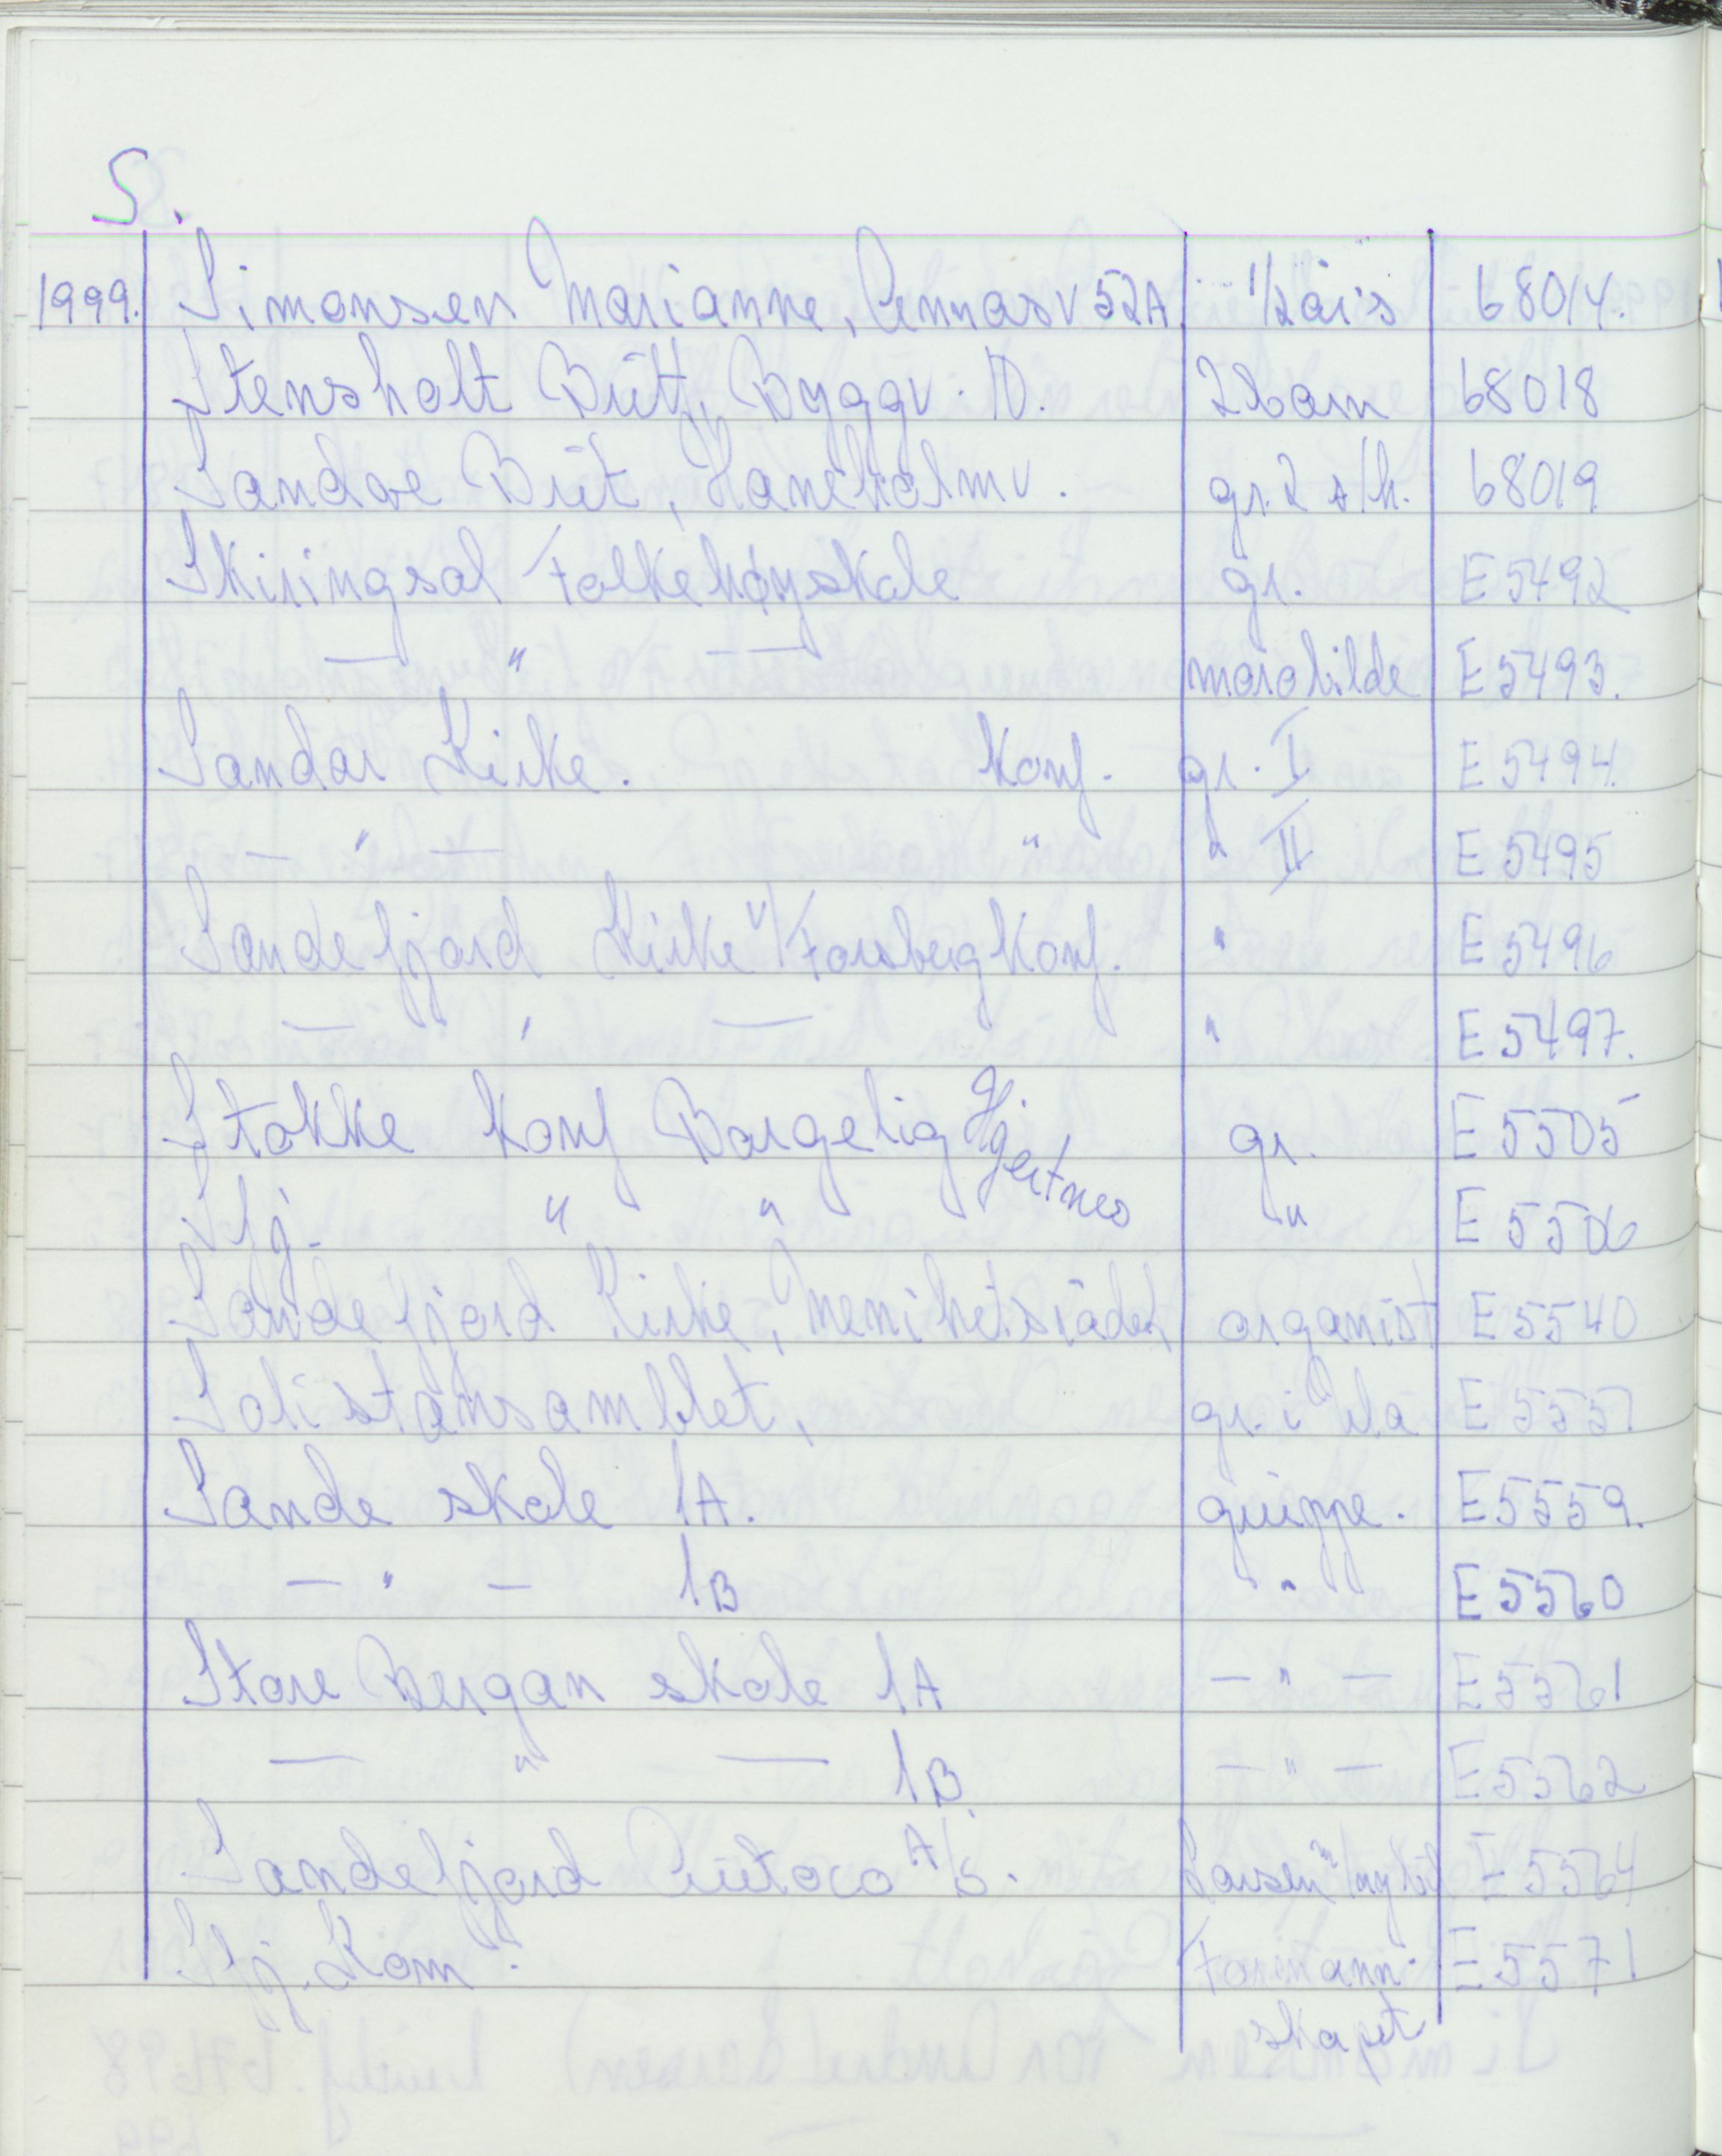 S.
1999. Simonsen Marianne, Annasv 52A. 1/2 år's 68014.
Stensholt Britt, Byggv. 10. 2 barn 68018
Sandøe Brit, Haneholmv. gr. 2 s/h. 68019
Skiringsal Folkehøyskole gr. E 5492
— " — morobilde E 5493.
Sandar Kirke. Konf. gr. I E 5494.
— " — " " II E 5495
Sandefjord Kirke v/Forsberg Konf. " E 5496
— " — " E 5497.
Stokke Konf Borgerlig Hjertnes gr. E 5505
Sfj. " " " E 5506
Sandefjord Kirke, Menihetsrådet organist E 5540
Solistansamblet, gr. i Ula E 5557.
Sande skole 1A. gruppe. E 5559.
— " — 1B " E 5560
Store Bergan skole 1A — " — E 5561
— " — 1B. — " — E 5562
Sandefjord Autoco A/S. Larsen m/nybil E 5564
Sfj. Kom. Formann- E 5571
skapet